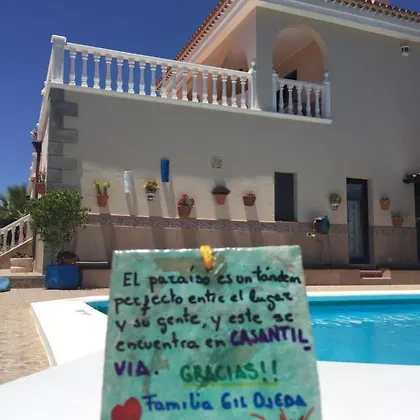 El paraíso es un tandem
perfecto entre el lugar
y su gente, y este se
encuentra en CASANTIL
VIA. GRACIAS!!
Familia GIL OJEDA